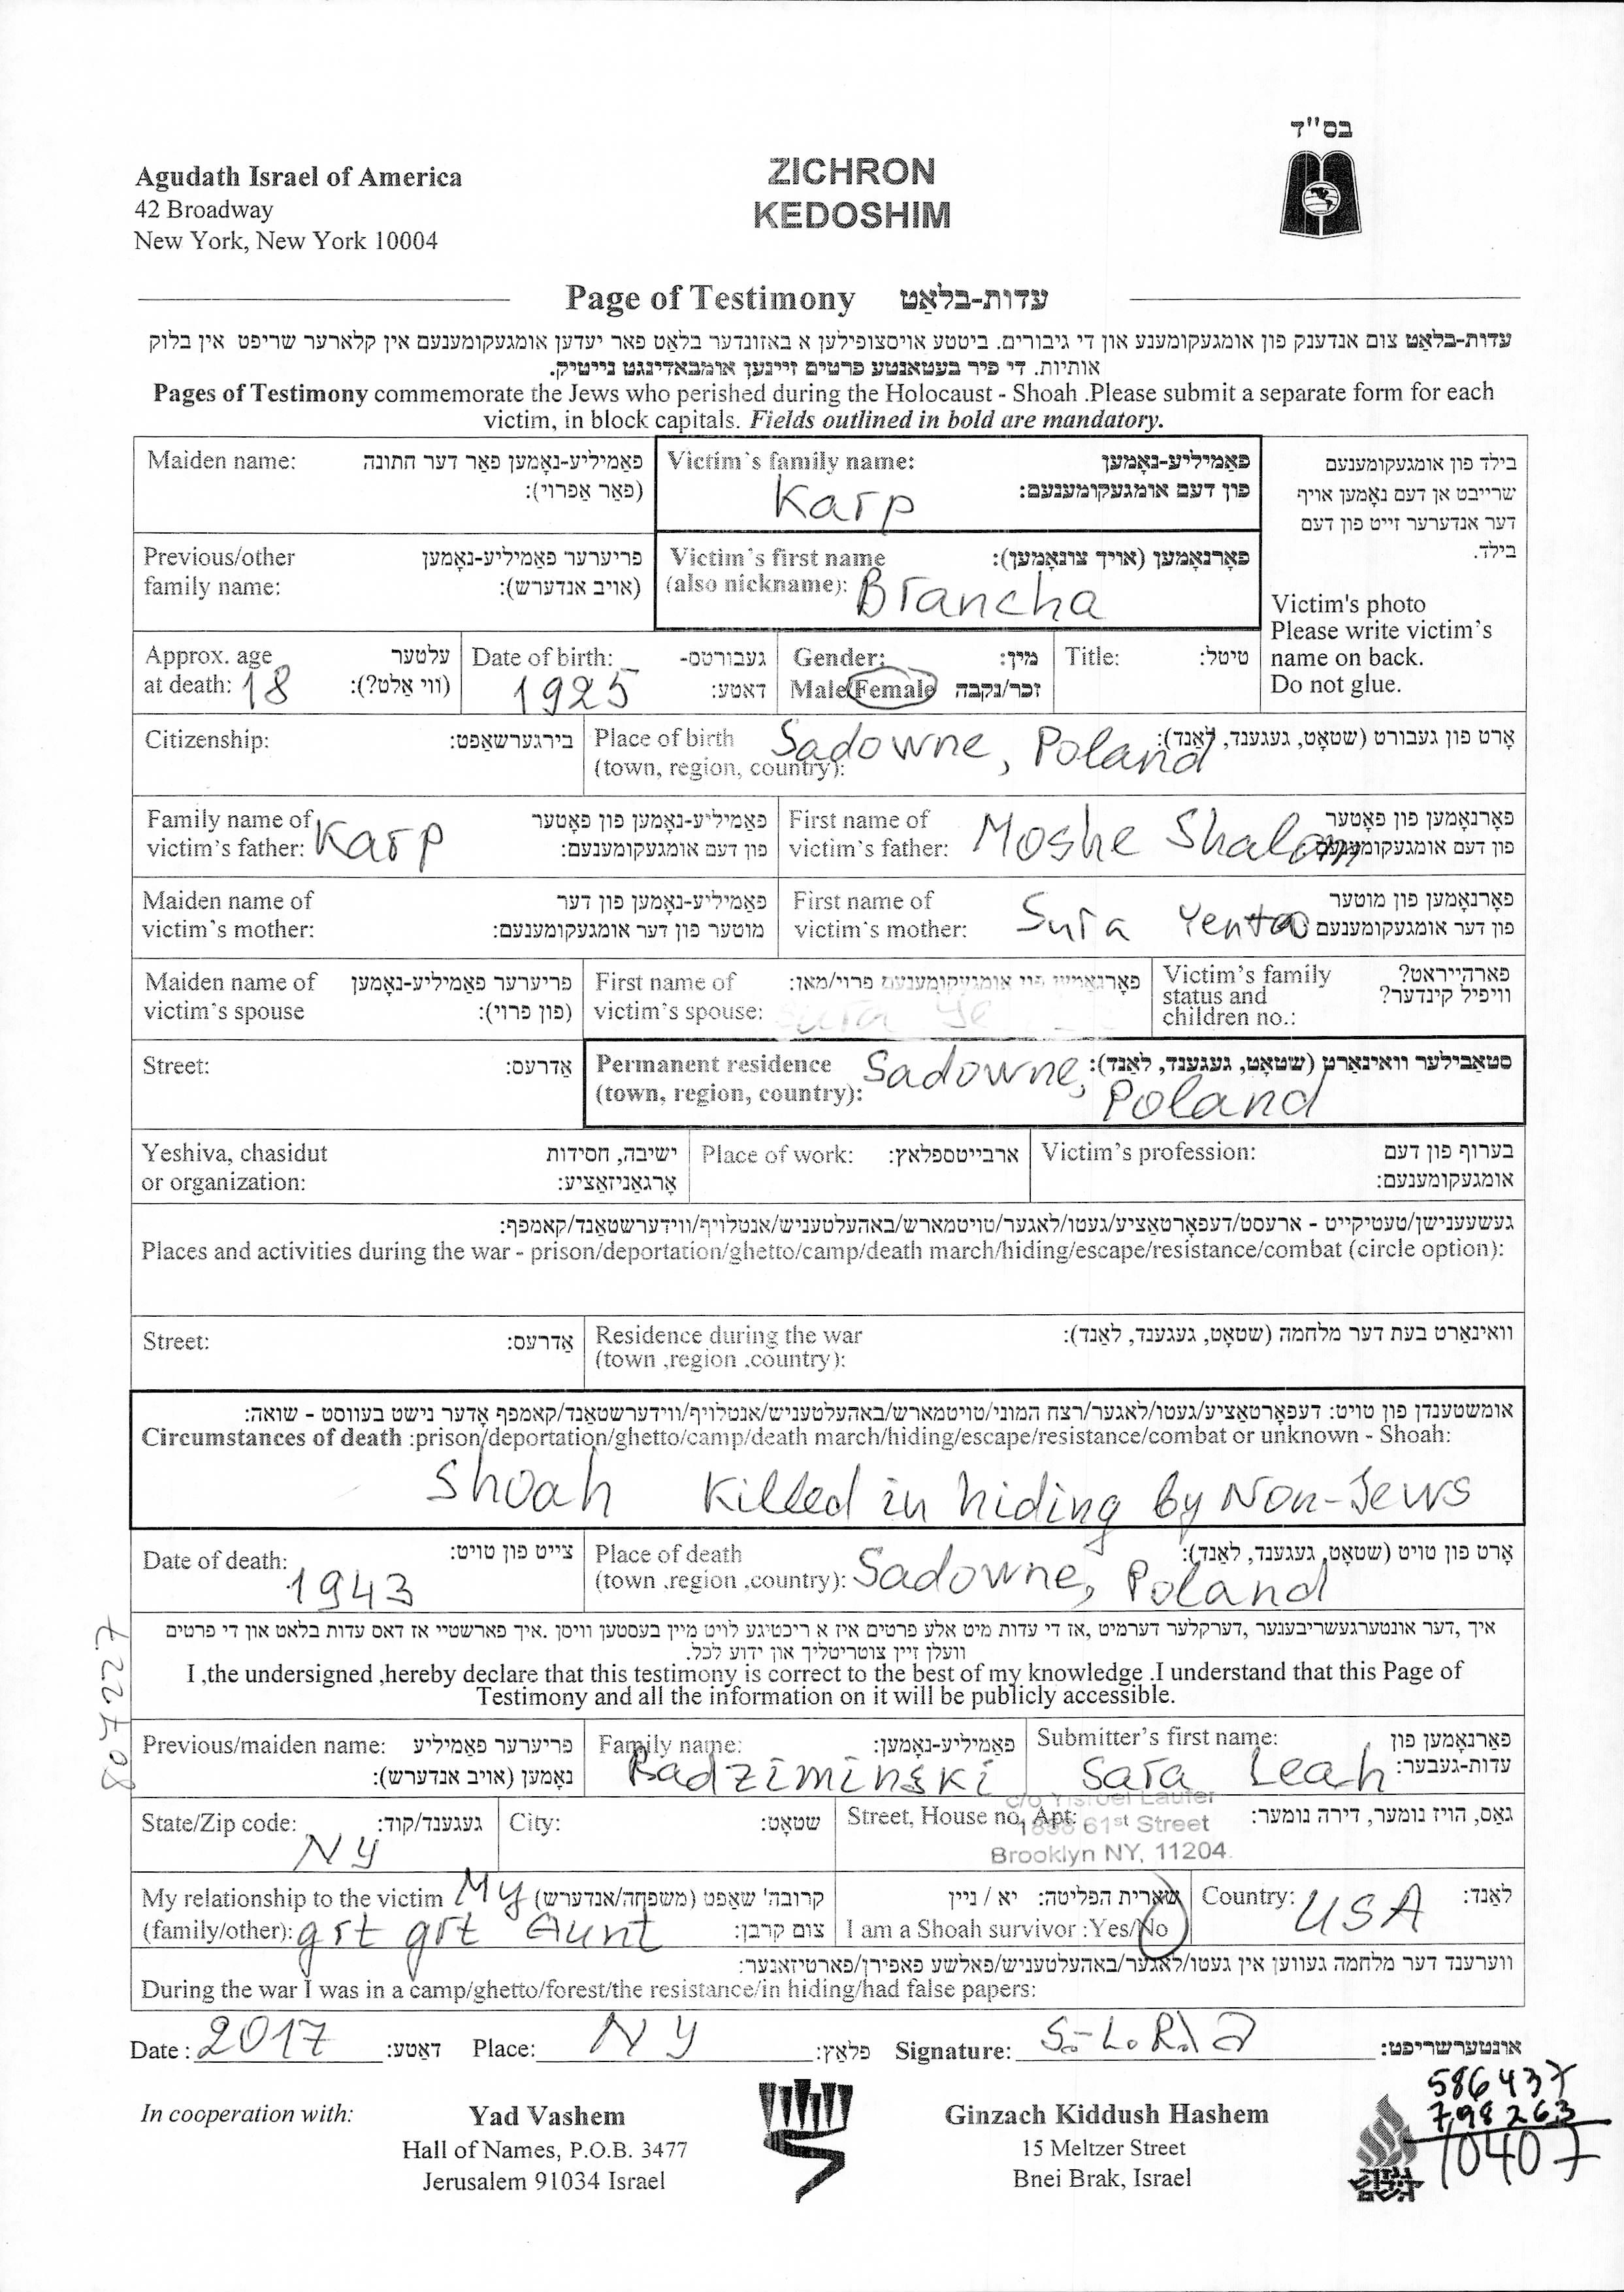 בס"ד
Agudath Israel of America
42 Broadway
New York, New York 10004
ZICHRON
KEDOSHIM
Page of Testimony עדות-בלאַט
עדות-בלאַט צום אנדענק פון אומגעקומענע און די גיבורים. ביטטע אויסצופילען א באזונדער בלאט פאר יעדען אומגעקומענעם אין קלארער שריפט אין בלוק
אותיות. די פיר בעטאנטע פרטים זיינען אומבאדינגט נייטיק.
Pages of Testimony commemorate the Jews who perished during the Holocaust - Shoah .Please submit a separate form for each
victim, in block capitals. Fields outlined in bold are mandatory.
Maiden name: פאַמיליע-נאָמען פאַר דער חתונה
(פאר אַפרוי):
Victim's family name: פאַמיליע-נאָמען
פון דעם אומגעקומענעם:
Karp
בילד פון אומגעקומענעם
שרייבט אן דעם נאָמען אויף
דער אנדערער זייט פון דעם
בילד.
Victim's photo
Please write victim's
name on back.
Do not glue.
Previous/other פריערער פאַמיליע-נאָמען
family name: (אויב אנדערש):
Victim's first name פאָרנאָמען (אויך צונאָמען):
(also nickname): Brancha
Approx. age עלטער
at death: 18 (ווי אַלט?):
Date of birth: געבורטס-
1925 דאַטע:
Gender: מין:
Male/Female זכר/נקבה
Title: טיטל:
Citizenship: בירגערשאַפט:
Place of birth Sadowne, Poland אָרט פון געבורט (שטאָט, געגענד, לאַנד):
(town, region, country):
Family name of פאַמיליע-נאָמען פון פאָטער
victim's father: Karp פון דעם אומגעקומענעם:
First name of פאָרנאָמען פון פאָטער
victim's father: Moshe Shalom פון דעם אומגעקומענעם
Maiden name of פאַמיליע-נאָמען פון דער
victim's mother: מוטער פון דער אומגעקומענעם:
First name of פאָרנאָמען פון מוטער
victim's mother: Sura Yenta פון דער אומגעקומענעם
Maiden name of פריערער פאַמיליע-נאָמען
victim's spouse (פון פרוי):
First name of פאָרנאָמען פון אומגעקומענעם פרוי/מאן:
victim's spouse:
Victim's family פארהייראט?
status and וויפיל קינדער?
children no.:
Street: אַדרעס:
Permanent residence Sadowne, סטאַבילער וואוינאָרט (שטאָט, געגענד, לאַנד):
(town, region, country): Poland
Yeshiva, chasidut ישיבה, חסידות
or organization: אָרגאַניזאַציע:
Place of work: ארבייטספלאץ:
Victim's profession: בערוף פון דעם
אומגעקומענעם:
געשעענישן/טעטיקייט - ארעסט/דעפאָרטאַציע/געטו/לאגער/טויטמארש/באהעלטעניש/אנטלויף/ווידערשטאַנד/קאמפף:
Places and activities during the war - prison/deportation/ghetto/camp/death march/hiding/escape/resistance/combat (circle option):
Street: אַדרעס:
Residence during the war וואוינאָרט בעת דער מלחמה (שטאָט, געגענד, לאַנד):
(town ,region .country):
אומשטענדן פון טויט: דעפאָרטאַציע/געטו/לאגער/רצח המוני/טויטמארש/באהעלטעניש/אנטלויף/ווידערשטאַנד/קאמפף אָדער נישט בעוווסט - שואה:
Circumstances of death :prison/deportation/ghetto/camp/death march/hiding/escape/resistance/combat or unknown - Shoah:
Shoah Killed in hiding by Non-Jews
Date of death: צייט פון טויט:
1943
Place of death אָרט פון טויט (שטאָט, געגענד, לאַנד):
(town .region .country): Sadowne, Poland
איך ,דער אונטערגעשריבענער ,דערקלער דערמיט ,אז די עדות מיט אלע פרטים איז א ריכטיגע לויט מיין בעסטען וויסן .איך פארשטיי אז דאס עדות בלאט און די פרטים
וועלן זיין צוטריטליך און ידוע לכל.
I ,the undersigned ,hereby declare that this testimony is correct to the best of my knowledge .I understand that this Page of
Testimony and all the information on it will be publicly accessible.
Previous/maiden name: פריערער פאַמיליע
נאָמען (אויב אנדערש):
Family name: פאַמיליע-נאָמען:
Radziminski
Submitter's first name: פאָרנאָמען פון
Sara Leah עדות-געבער:
State/Zip code: געגענד/קוד:
NY
City: שטאָט:
Street, House no, Apt: גאַס, הויז נומער, דירה נומער:
c/o Yisroel Laufer
1898 61st Street
Brooklyn NY, 11204
My relationship to the victim My קרובה'שאַפט (משפחה/אנדערש)
(family/other): grt grt Aunt צום קרבן:
שארית הפליטה: יא / ניין
I am a Shoah survivor :Yes/No
Country: USA לאַנד:
ווערענד דער מלחמה געווען אין געטו/לאגער/באהעלטעניש/פאלשע פאפירן/פארטיזאנער:
During the war I was in a camp/ghetto/forest/the resistance/in hiding/had false papers:
Date : 2017 דאַטע: Place: NY פלאַץ: Signature: S-L.Rad אונטערשריפט:
In cooperation with:
Yad Vashem
Hall of Names, P.O.B. 3477
Jerusalem 91034 Israel
Ginzach Kiddush Hashem
15 Meltzer Street
Bnei Brak, Israel
586437
798263
10407
807227